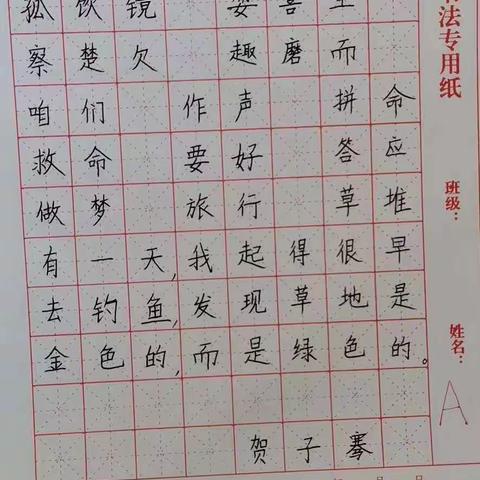 孤 饮 镜
察 楚 欠 趣 磨 而
咱 们 作 声 拼 命
救 命 要 好 答 应
做 梦 旅 行 草 堆
有一天,我起得很早
去钓鱼,发现草地是
金色的,而是绿色的。
贺子骞
法专用纸
班级:
姓名:
A